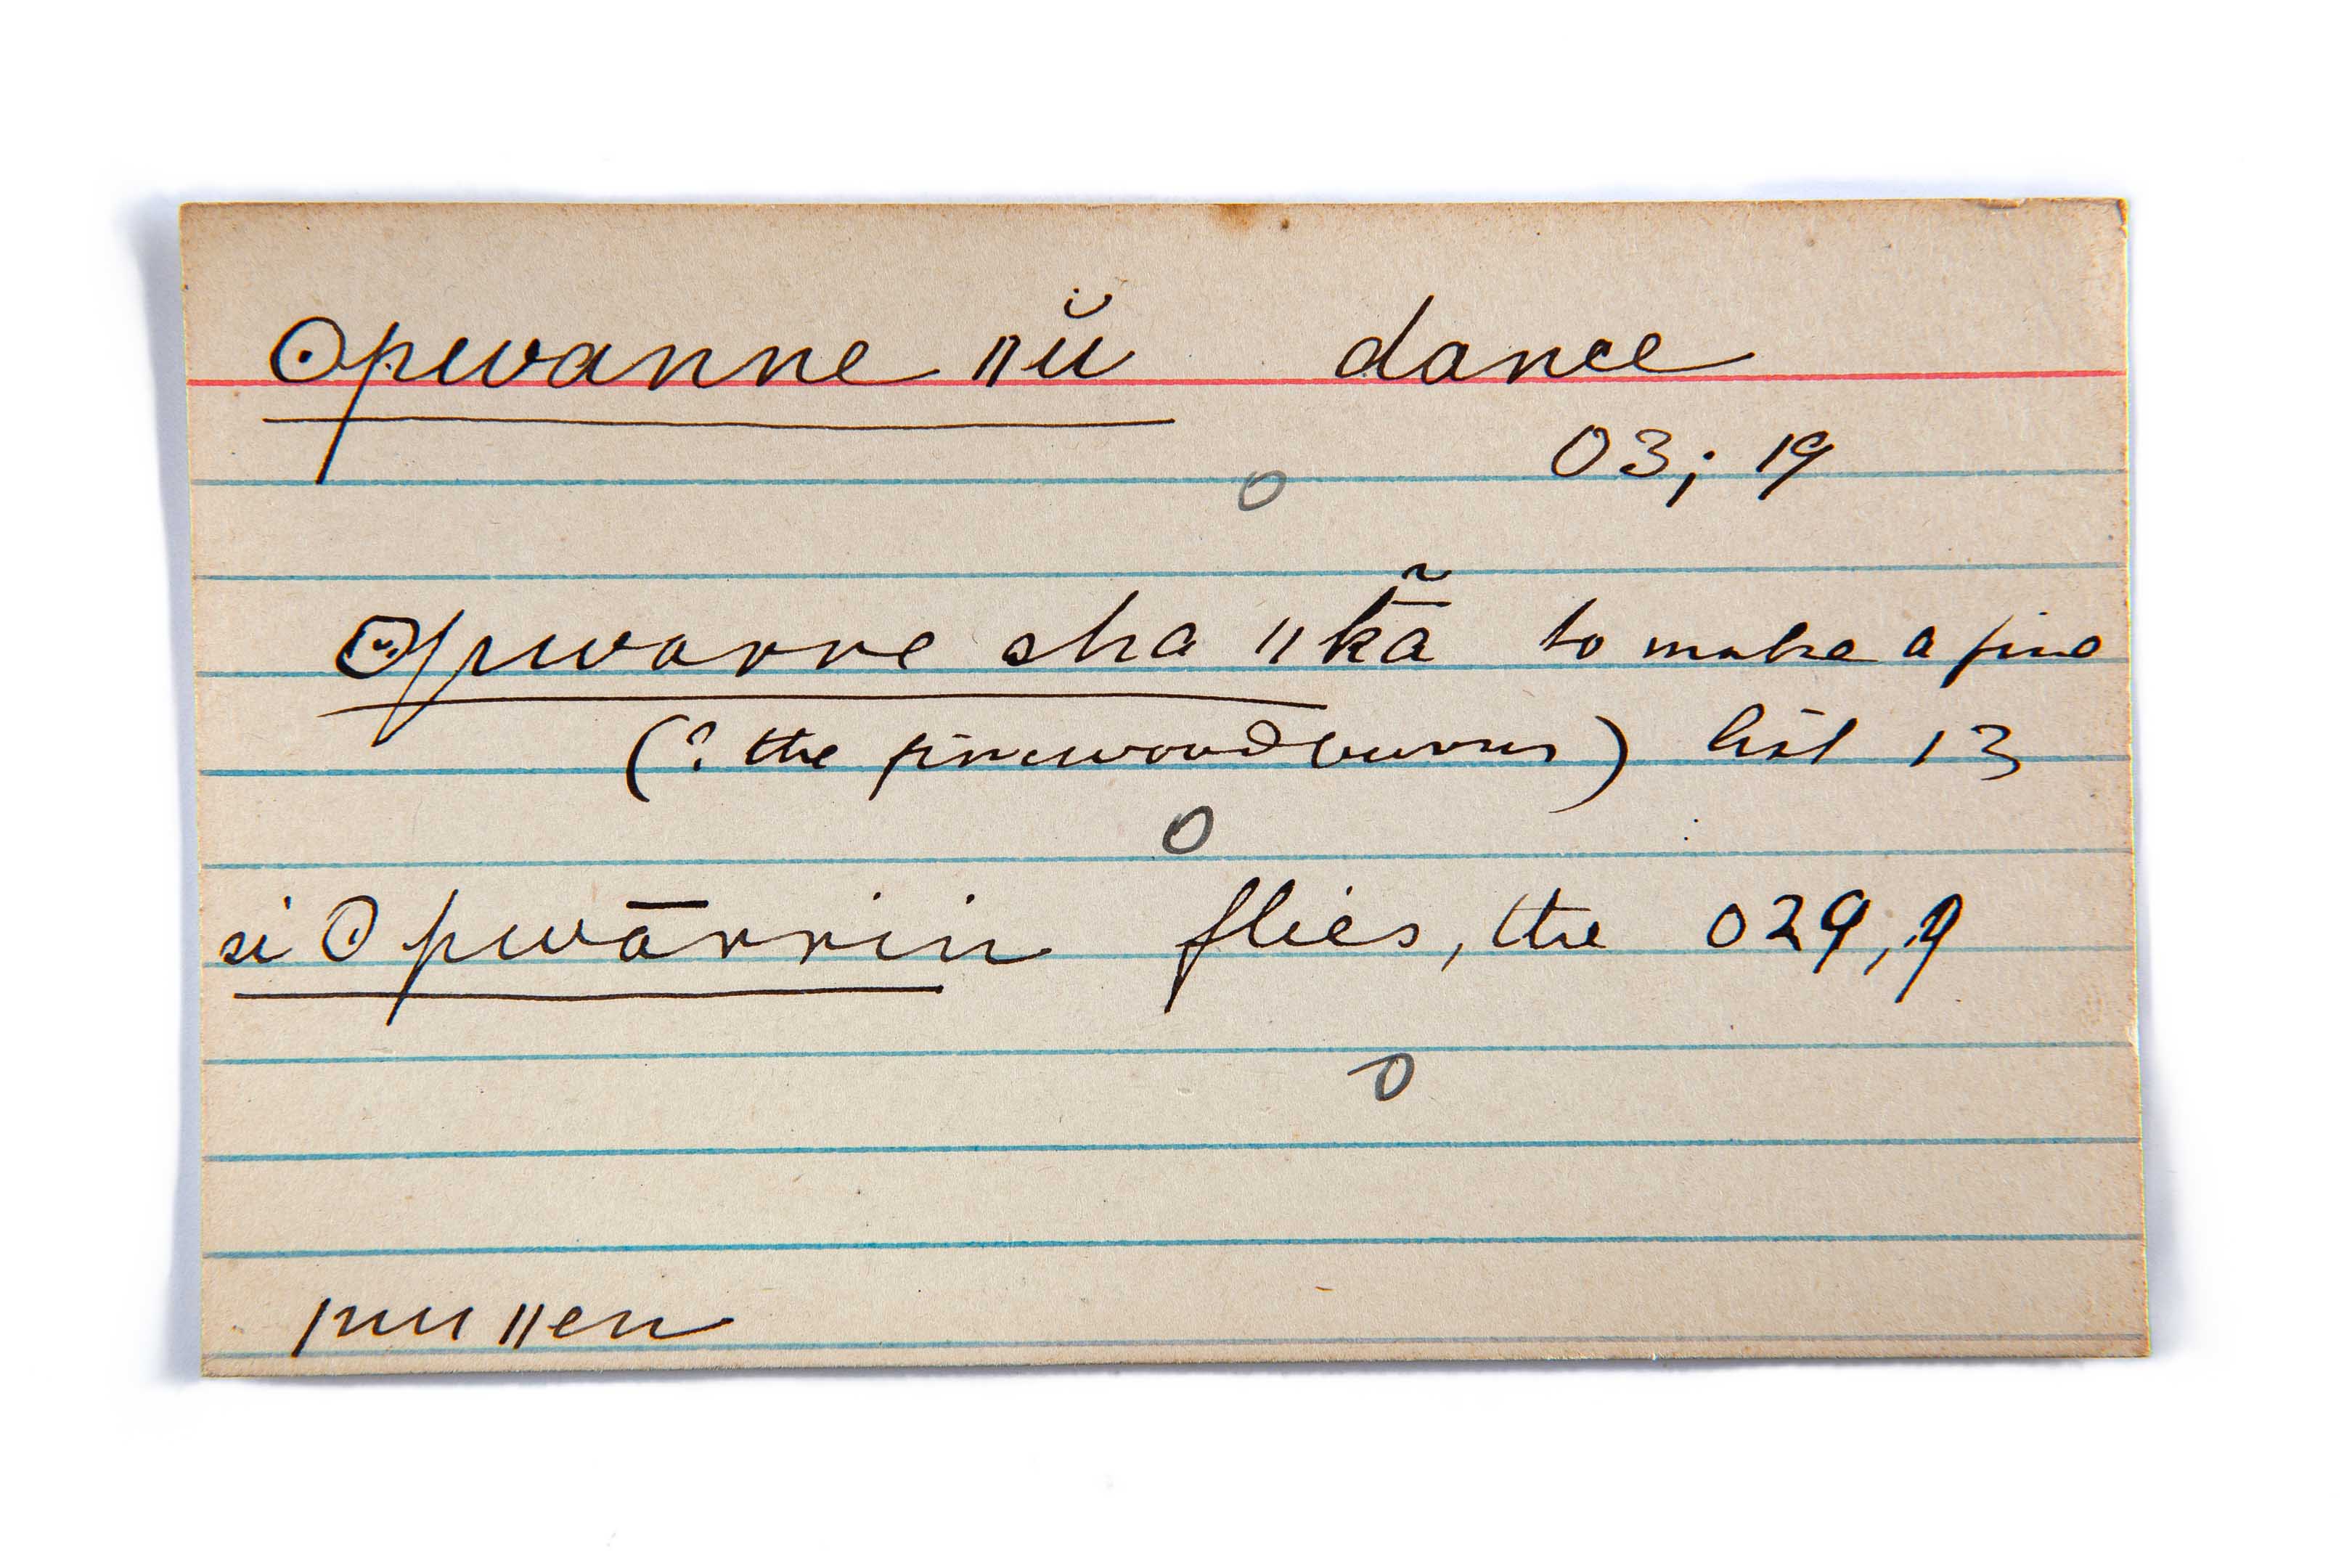 ʘpwanne ǁŭ̇ dance
03; 19
o
ʘpwarre sha ǁkā̃ to make a fire
(? the firewood burns) list 13
o
si ʘpwārrin flies, the 029, 9
o
ǁen